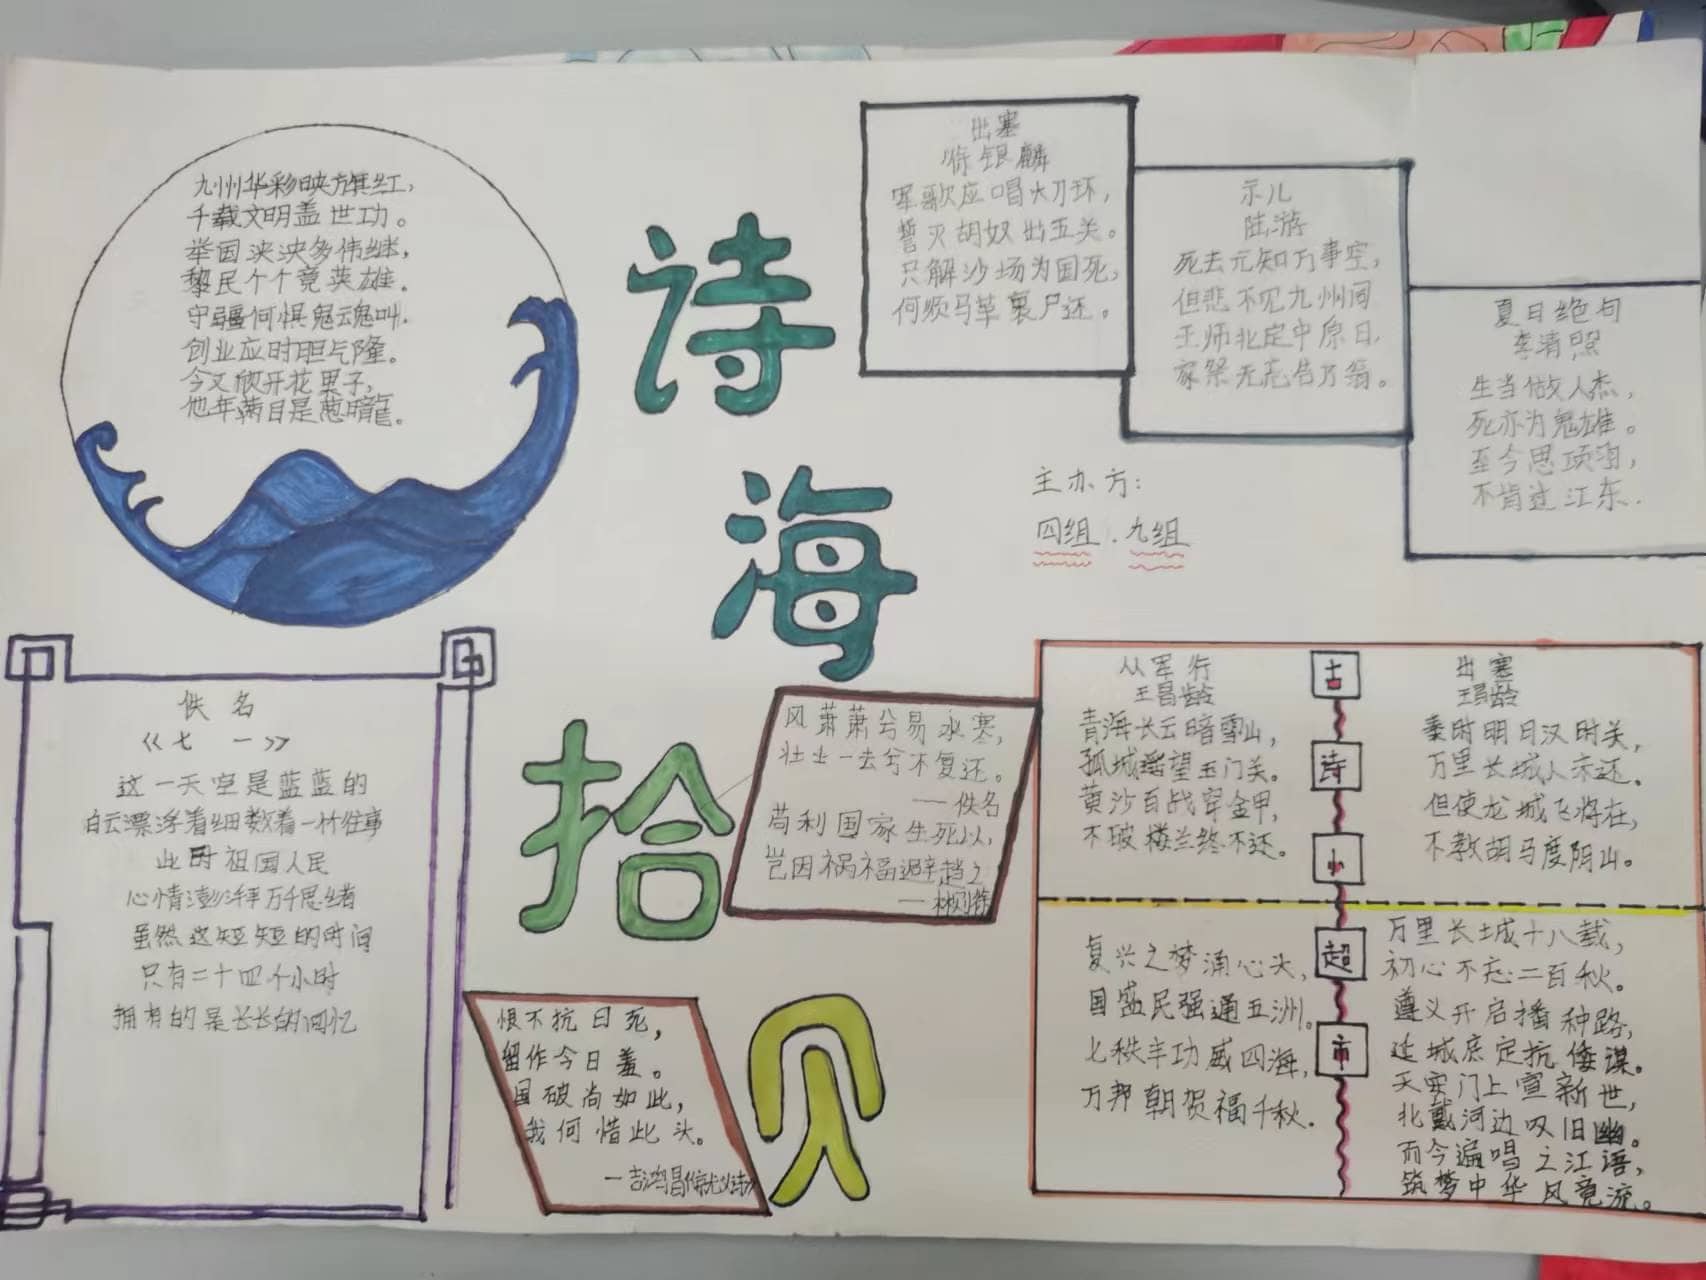 九州华彩映旗红,
千载文明盖世功。
举国泱泱多伟继,
黎民个个竟英雄.
守疆何惧鬼魂叫.
创业应时胆气隆。
今又欣开花果子,
他年满目是葱曨.
诗海拾贝
出塞
徐银麟
军歌应唱大刀环,
誓灭胡奴出玉关。
只解沙场为国死,
何须马革裹尸还。
示儿
陆游
死去元知万事空,
但悲不见九州同
王师北定中原日,
家祭无忘告乃翁。
夏日绝句
李清照
生当做人杰,
死亦为鬼雄。
至今思项羽,
不肯过江东.
主办方:
四组.九组
佚名
《七一》
这一天空是蓝蓝的
白云漂浮着细数着一竹往事
此时祖国人民
心情澎湃万千思绪
虽然这短短的时间
只有二十四个小时
拥有的是长长的回忆
风萧萧兮易水寒,
壮士一去兮不复还。
——佚名
苟利国家生死以,
岂因祸福避趋之
——林则徐
恨不抗日死,
留作今日羞。
国破尚如此,
我何惜此头。
—吉鸿昌《就义诗》
古诗小超市
从军行
王昌龄
青海长云暗雪山,
孤城遥望玉门关。
黄沙百战穿金甲,
不破楼兰终不还。
出塞
王昌龄
秦时明月汉时关,
万里长城人未还.
但使龙城飞将在,
不教胡马度阴山。
复兴之梦涌心头,
国盛民强通五洲。
七秩丰功威四海,
万邦朝贺福千秋.
万里长城十八载,
初心不忘二百秋。
遵义开启播种路,
延城底定抗倭谋。
天安门上宣新世,
北戴河边叹旧幽。
而今遍唱之江语,
筑梦中华风竟流。